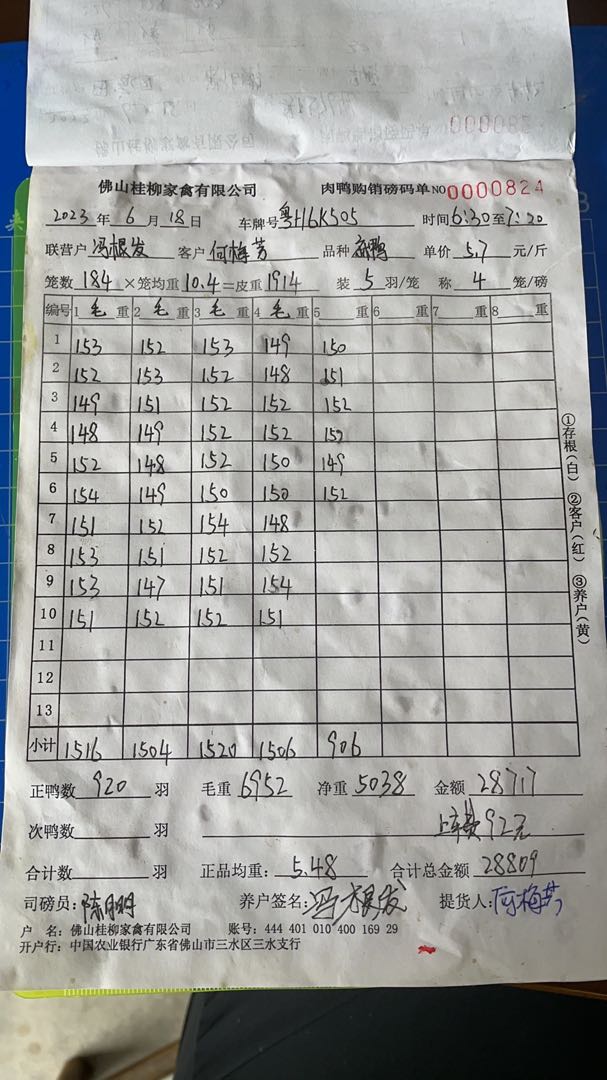 佛山桂柳家禽有限公司 肉鸭购销磅码单 NO 0000824
2023 年 6 月 18 日 车牌号 粤H6K505 时间 6:30 至 7:20
联营户 冯根发 客户 何梅芳 品种 麻鸭 单价 5.7 元/斤
笼数 184 ×笼均重 10.4 =皮重 1914 装 5 羽/笼 称 4 笼/磅
编号 1 毛 重 2 毛 重 3 毛 重 4 毛 重 5 重 6 重 7 重 8 重
1 153 152 153 149 150
2 152 153 152 148 151
3 149 151 152 152 152
4 148 149 152 152 152
5 152 148 152 150 149
6 154 149 150 150 152
7 151 152 154 148
8 153 151 152 152
9 153 147 151 154
10 151 152 152 151
11
12
13
小计 1516 1504 1520 1506 906
正鸭数 920 羽 毛重 6952 净重 5038 金额 28717
次鸭数 羽 上车费92元
合计数 羽 正品均重: 5.48 合计总金额 28809
司磅员: 养户签名: 冯根发 提货人: 何梅芳
户 名: 佛山桂柳家禽有限公司 账号: 444 401 010 400 169 29
开户行: 中国农业银行广东省佛山市三水区三水支行
①存根(白) ②客户(红) ③养户(黄)